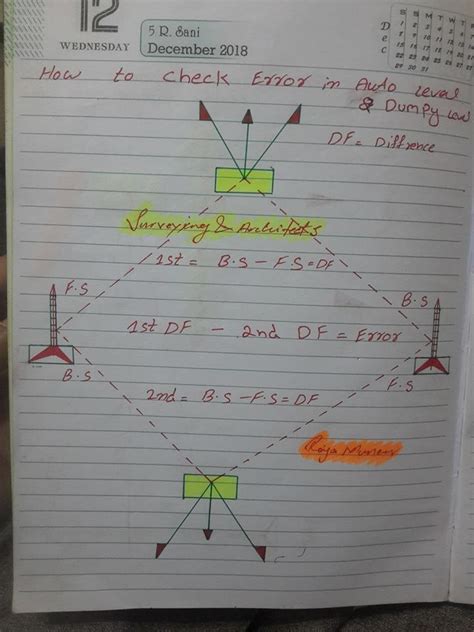 12
WEDNESDAY
5 R. Sani
December 2018
Dec
S S M T W T F S
How to Check Error in Auto Level
& Dumpy Level
DF = Diffrence
Surveying & Architects
1st = B.S - F.S = DF
F.S
B.S
1st DF - 2nd DF = Error
B.S
F.S
2nd = B.S - F.S = DF
Raja Muneer